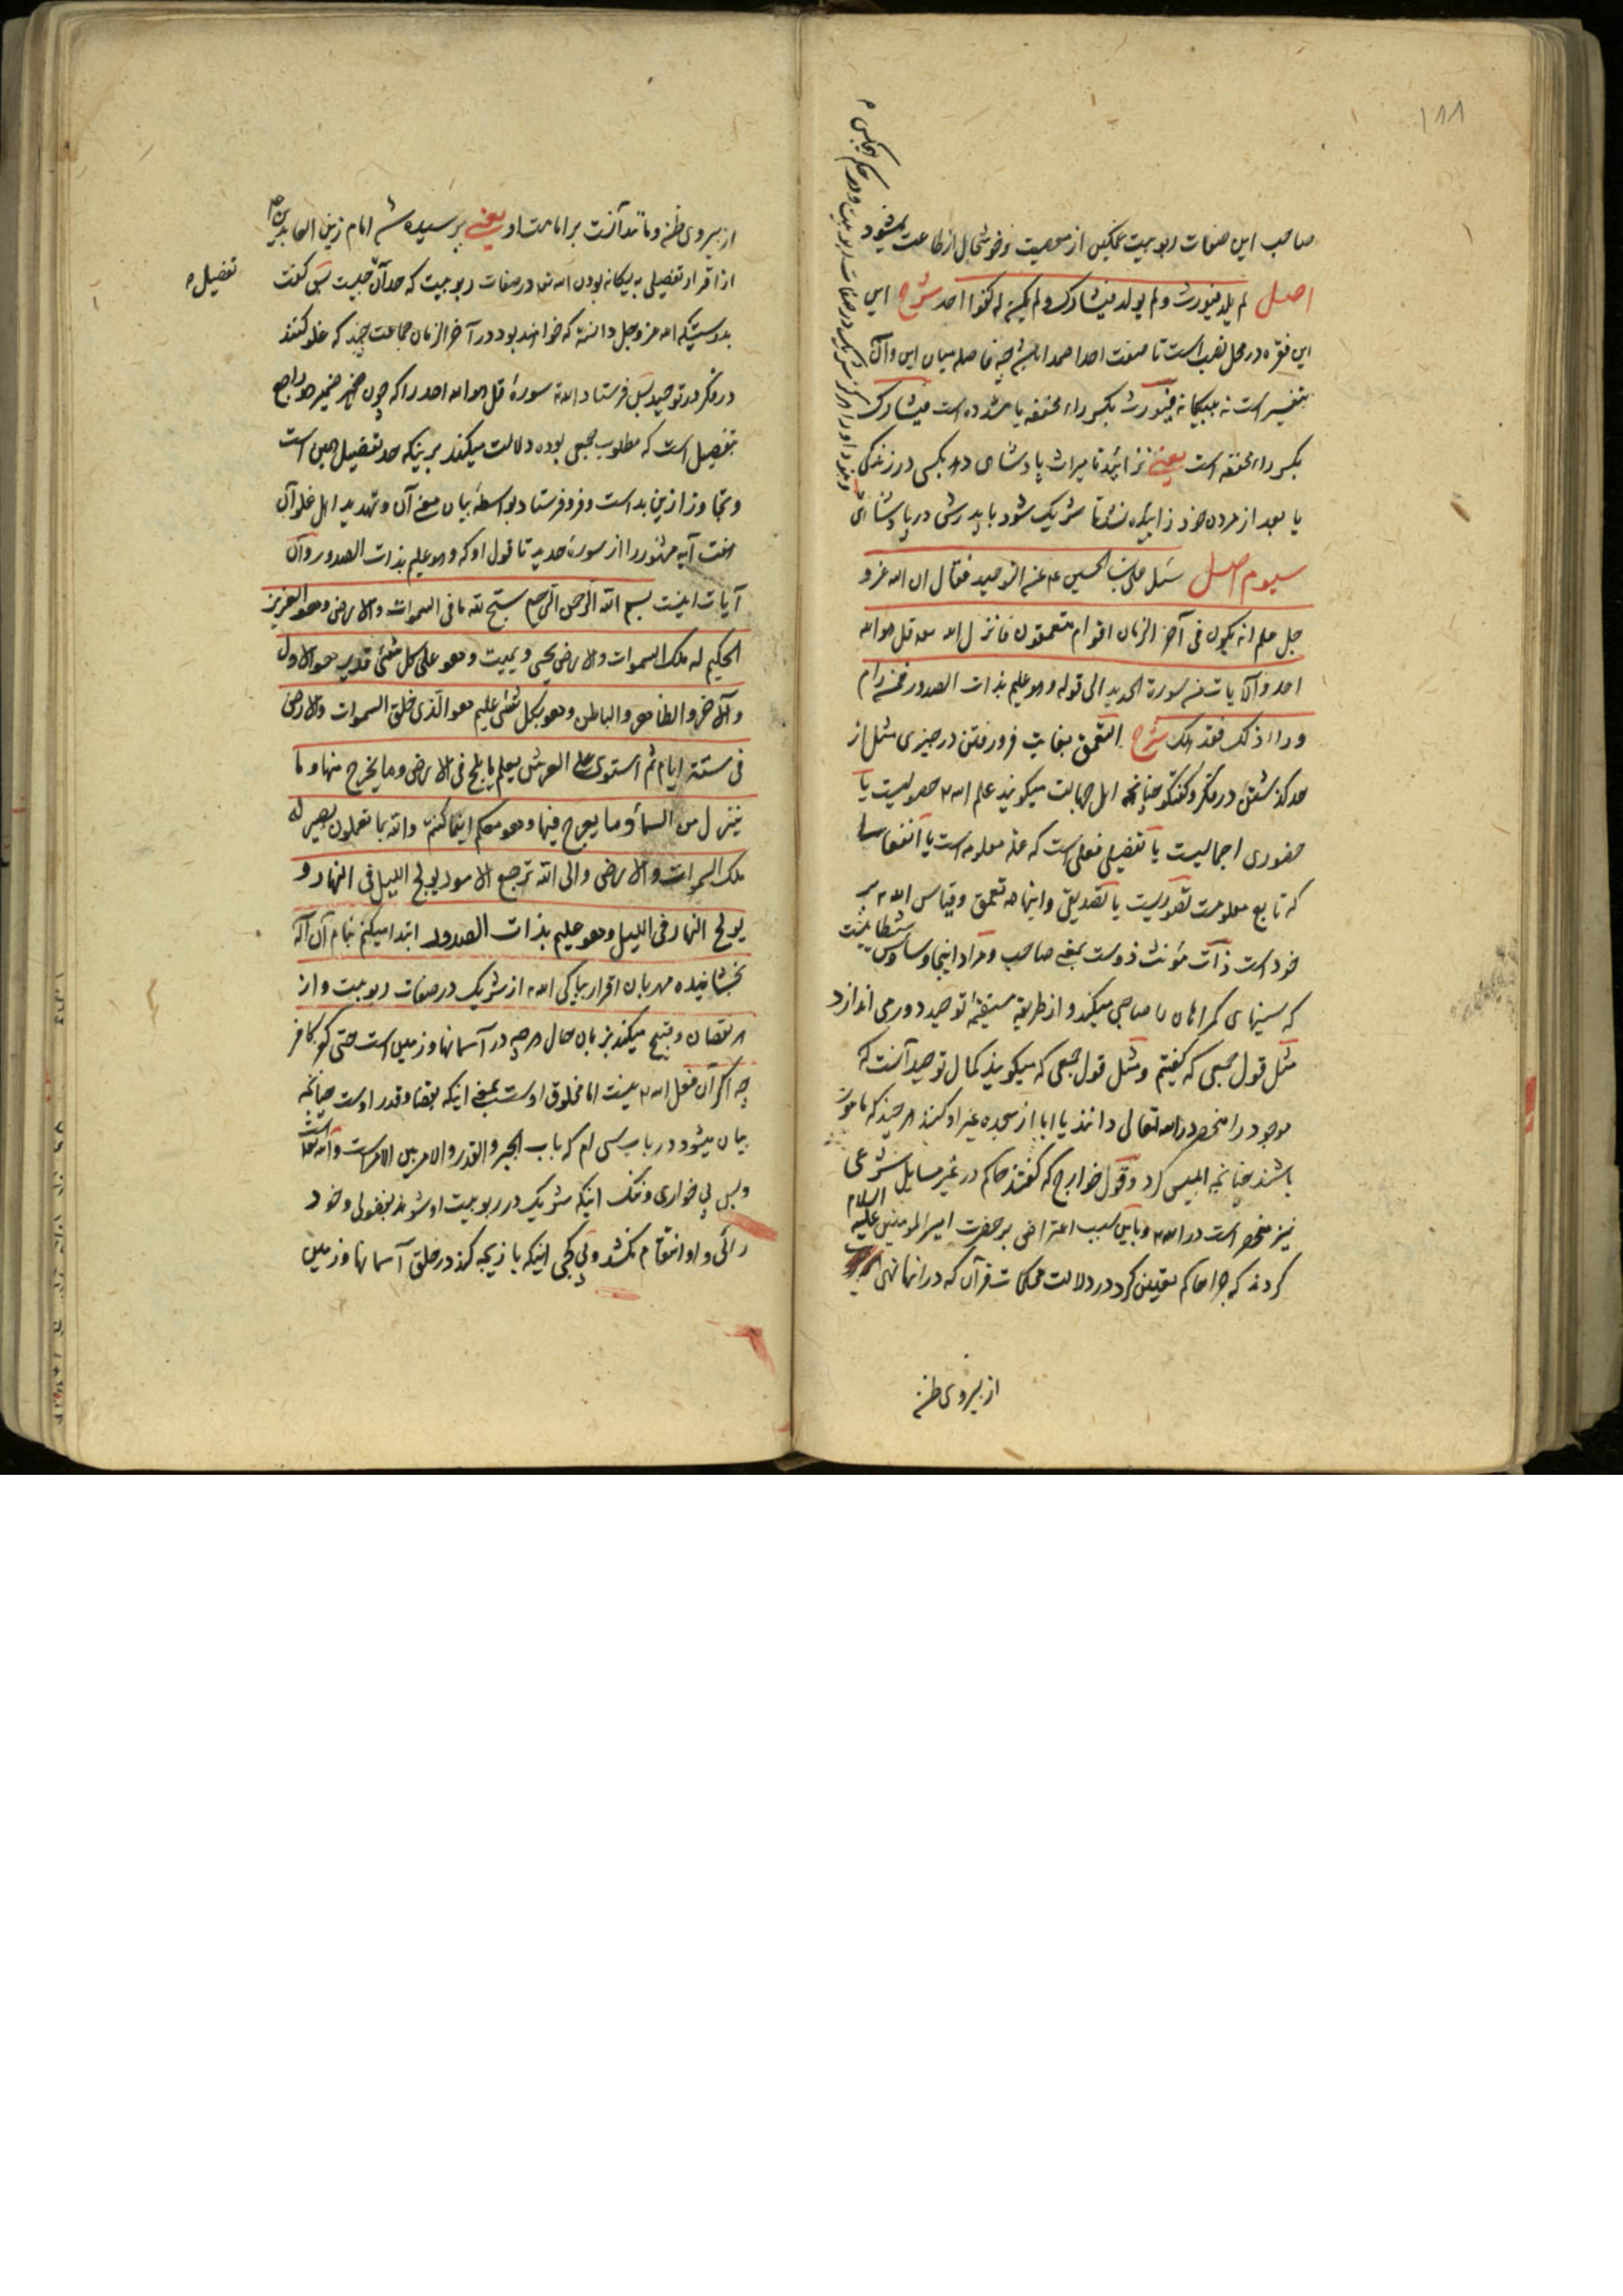 ۱۸۸
صاحب این صفات ربوبیت غمکین از معصیت و خوشحال از طاعت میشود
اصل لم یلد فیورث و لم یولد فیشارک و لم یکن له کفوا احد شرح این
این فقره در محل نصب است تا صفت احدا صمدا باشد چه فاصله میان این و آن
بتفسیر است نه ببیکانه فیورث بکسر راء مخففه یا مشدده است فیشارک
بکسر راء مخففه است یعنی نزائید تا میراث پادشاهی دهد بکسی در زندکی
یا بعد از مردن خود زائیده نشد تا شریک شود با پدرش در پادشاهی
سیوم اصل سئل علی بن الحسین ع عن التوحید فقال ان الله عز و
جل علم انه یکون فی آخر الزمان اقوام متعمقون فانزل الله تعه قل هو الله
احد و الآیات من سورة الحدید الی قوله و هو علیم بذات الصدور فمن رام
وراء ذلک فقد هلک شرح التعمق بغایت فرو رفتن در چیزی مثل از
حد کذشتن در فکر و کفتکو چنانچه اهل جهالت میکویند علم الله تع حصولیست یا
حضوری اجمالیست یا تفضیلی فعلی است که علة معلومه است یا انفعالی
که تابع معلومست تصوریست یا تصدیقی و اینها همه تعمق و قیاس الله تع بر
خود است ذات مؤنث ذوست بمعنی صاحب و مراد اینجا وساوس شیطانیست
که سینهای کمراهان را صاحبی میکند و از طریقه مستقیمه توحید دور می اندازد
مثل قول جمعی که کفتیم و مثل قول جمعی که میکویند کمال توحید آنست که
موجود را منحصر در الله تعالی دانند یا ابا از سجده غیر او کنند هر چند که مامور
باشند چنانچه ابلیس کرد و قول خوارج که کفتند حاکم در غیر مسایل شرعی
نیز منحصر است در الله تع و باین سبب اعتراض بر حضرت امیر المومنین علیه السلام
کردند که چرا حاکم تعیین کرد در دلالت محکمات قرآن که در آنها نهی است
از پیروی ظن
از پیروی ظن و مانند آنست بر امامت او یعنی پرسیده شد امام زین العابدین ع
از اقرار تفصیلی به بیکانه بودن الله تعه در صفات ربوبیت که حد آن چیست پس کفت
تفضیل
بدرستیکه الله عز و جل دانسته که خواهند بود در آخر الزمان جماعت چند که غلو کنند
در فکر در توحید پس فرستاد الله تع سورهٔ قل هو الله احد را که چون ضمیر هو راجع
بتفصیل است که مطلوب جمعی بوده دلالت میکند بر اینکه حد تفضیل همین است
و تجاوز ازین بد است و فرو فرستاد بواسطهٔ بیان معنی آن و تهدید اهل غلو آن
هفت آیه مشهور را از سوره حدید تا قول او که و هو علیم بذات الصدور و آن
آیات اینست بسم الله الرحمن الرحیم سبح لله ما فی السموات و الارض و هو العزیز
الحکیم له ملک السموات و الارض یحیی و یمیت و هو علی کل شئ قدیر هو الاول
و الآخر و الظاهر و الباطن و هو بکل شئ علیم هو الذی خلق السموات و الارض
فی ستة ایام ثم استوی علی العرش یعلم ما یلج فی الارض و ما یخرج منها و ما
ینزل من السمآء و ما یعرج فیها و هو معکم اینما کنتم و الله بما تعملون بصیر له
ملک السموات و الارض و الی الله ترجع الامور یولج اللیل فی النهار و
یولج النهار فی اللیل و هو علیم بذات الصدور ابتدا میکنم بنام آن اله
بخشاینده مهربان اقرار بپاکی الله تع از شریک در صفات ربوبیت و از
هر نقصان و قبیح میکند بزبان حال هر چه در آسمانها و زمین است حتی کفر کافر
چه اکر آن فعل الله تع نیست اما مخلوق اوست بمعنی اینکه بقضا و قدر اوست چنانچه
بیان میشود در باب سی ام که باب الجبر و القدر و الامر بین الامرین است
و بس بی خواری و ننک اینکه شریک در ربوبیت او شوند بفضولی و خود
رائی و او انتقام نکشد و بی کجی اینکه بازیچه کند در خلق آسمانها و زمین